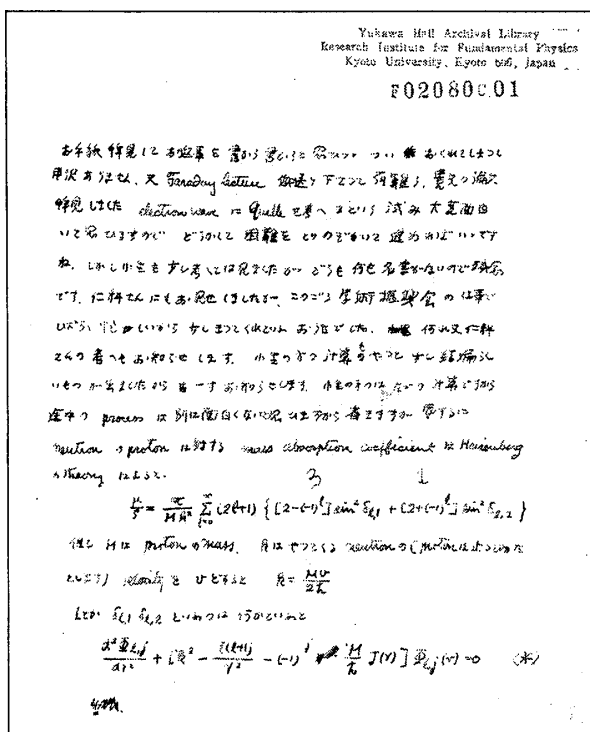 Yukawa Hall Archival Library
Research Institute for Fundamental Physics
Kyoto University, Kyoto 606, Japan
F02080C01
お手紙拝見して お返事を書かう 書かうと 思ひつつ つい おくれてしまって
申訳ありません. 又 Faraday lecture 御送り下さって 有難う.
拝見しました electron wave に Quelle を考へるといふ 試み 大変面白
いと思ひますので どうかして 困難を とりのぞいて 進めればいいです
ね. しかし小生も少し考へては見ましたが どうも 何も名案がないので残念
です. 仁科さんにもお見せしましたが, このごろ 学術振興会の仕事で
少しまってくれとの お話でした. 何れ又仁科
さんの考へもお知らせします. 小生の方の計算もやっと少し結論らし
いものが出ましたから 一寸お知らせします. 小生の方のは 計算ですから
途中の process は別に面白くないと思ひますから 省きますが 要するに
neutron の proton に対する mass absorption coefficient は Heisenberg
の theory によると.
3 1
μ/ρ = π/(M k²) Σ_{l=0}^{∞} (2l+1) { [2-(-1)^l] sin² δ_{l,1} + [2+(-1)^l] sin² δ_{l,2} }
但し M は proton の mass. k はやってくる neutron の (proton は
とします) velocity を v とすると k = Mv/2ħ
しとか δ_{l,1} δ_{l,2} といふのは
d²Φ_{l,j}/dr² + [k² - l(l+1)/r² - (-1)^j M/ħ J(r)] Φ_{l,j}(r) = 0 (*)